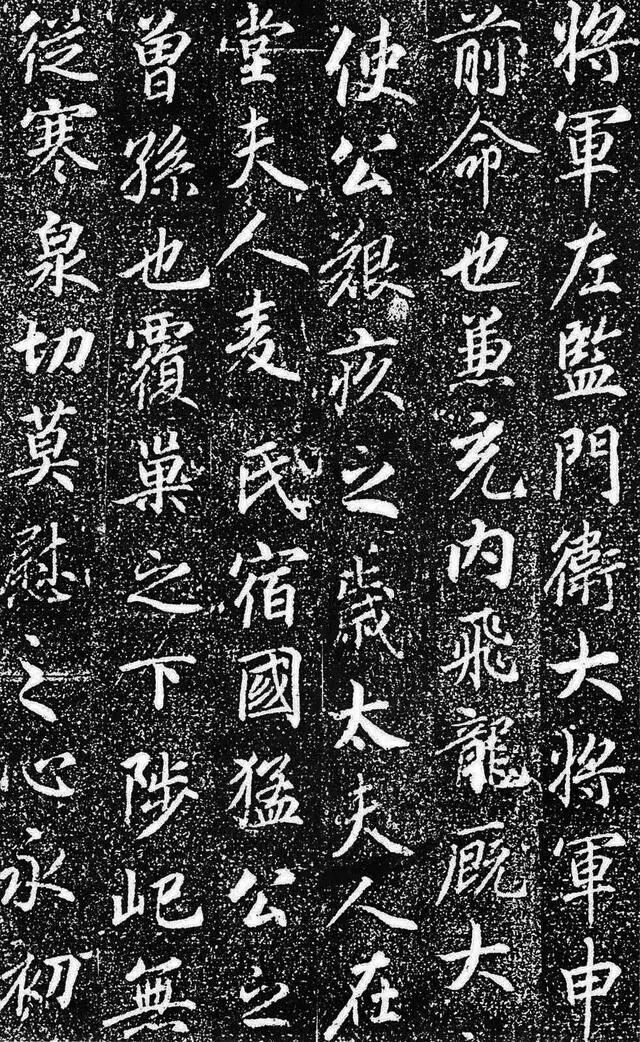 將軍左監門衛大將軍申
前命也兼充內飛龍厩大
使公艱疚之歲太夫人在
堂夫人麦氏宿國猛公之
曾孫也覆巢之下陟屺無
從寒泉切莫慰之心永初